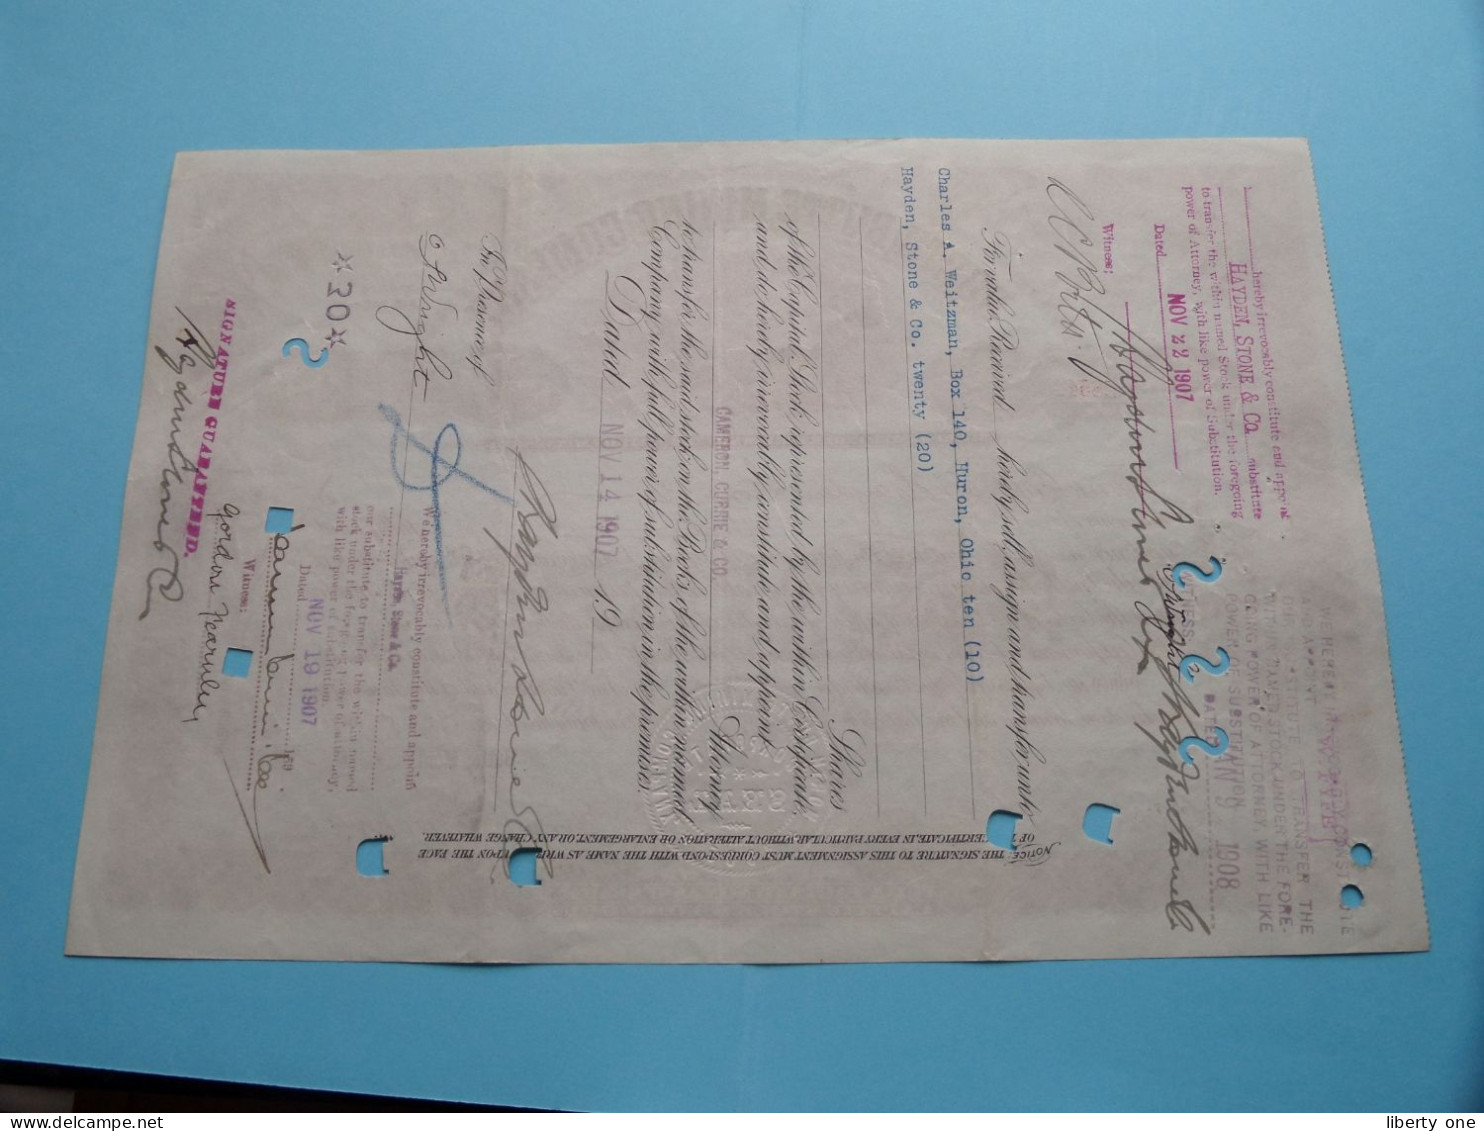 hereby irrevocably constitute and appoint
HAYDEN, STONE & CO. substitute
to transfer the within named Stock under the foregoing
power of Attorney, with like power of Substitution.
Dated NOV 22 1907
Witness:
For value Received hereby sell, assign and transfer unto
Charles A. Weitzman, Box 140, Huron, Ohio ten (10)
Hayden, Stone & Co. twenty (20)
Shares
of the Capital Stock represented by the within Certificate,
and do hereby irrevocably constitute and appoint
CAMERON, CURRIE & CO. Attorney
to transfer the said stock on the Books of the within named
Company with full power of substitution in the premises.
Dated NOV 14 1907 19
In Presence of
Wright
Hayden Stone & Co
NOTICE: THE SIGNATURE TO THIS ASSIGNMENT MUST CORRESPOND WITH THE NAME AS UPON THE FACE
OF CERTIFICATE, IN EVERY PARTICULAR, WITHOUT ALTERATION OR ENLARGEMENT, OR ANY CHANGE WHATEVER.
We hereby irrevocably constitute and appoint
Hayden, Stone & Co.
our substitute to transfer the within named
stock under the foregoing power of attorney,
with like power of substitution.
Dated NOV 19 1907 190
Cameron Currie & Co
Witness:
Gordon
*30*
SIGNATURE GUARANTEED.
Hayden Stone & Co
AND APPOINT
SUBSTITUTE TO TRANSFER THE
WITHIN NAMED STOCK UNDER THE FORE-
GOING POWER OF ATTORNEY, WITH LIKE
POWER OF SUBSTITUTION
DATED JAN 9 1908
WITNESS
Hayden Stone & Co
liberty one